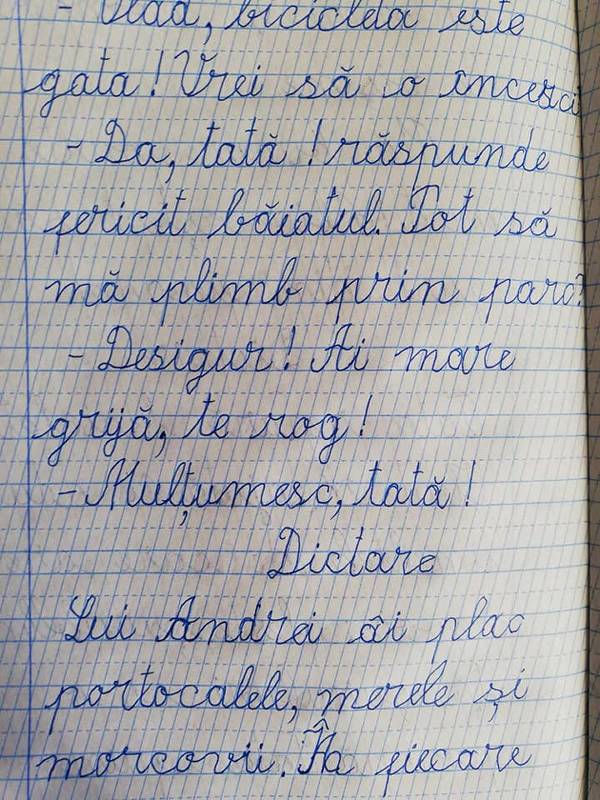 - Vlad, bicicleta este
gata! Vrei să o
- Da, tată! răspunde
fericit băiatul. Pot să
mă plimb prin parc?
- Desigur! Ai mare
grijă, te rog!
- Mulțumesc, tată!
Dictare
Lui Andrei îi plac
portocalele, merele și
morcovii. fiecare